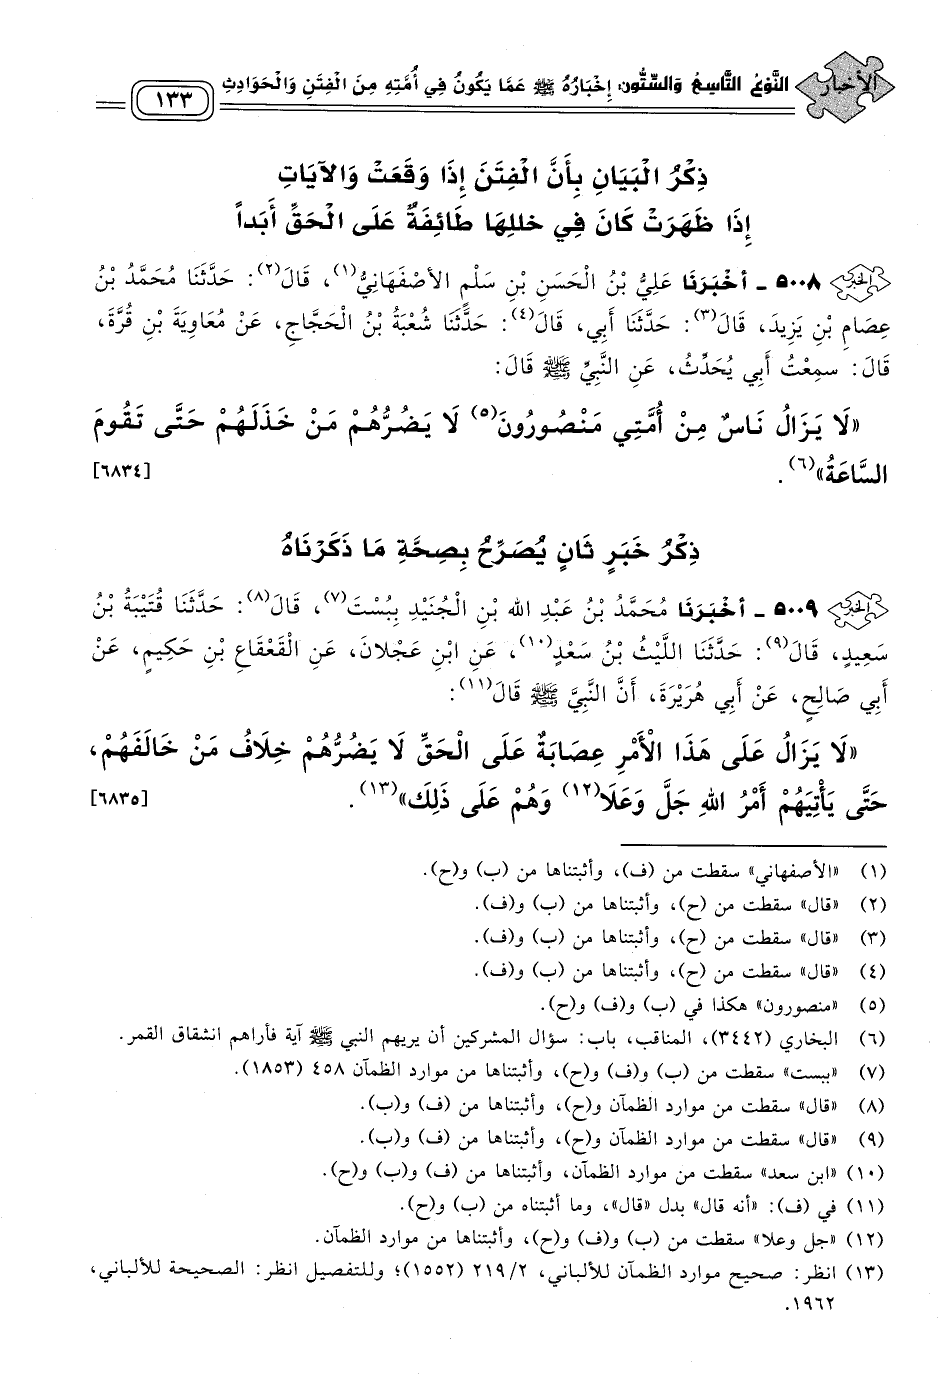 الأخبار النَّوْعُ التَّاسِعُ وَالسِّتُّون: إخْبَارُهُ ﷺ عَمَّا يَكُونُ فِي أُمَّتِهِ مِنَ الْفِتَنِ وَالْحَوَادِثِ ١٣٣
ذِكْرُ الْبَيَانِ بِأَنَّ الْفِتَنَ إِذَا وَقَعَتْ وَالآيَاتِ
إِذَا ظَهَرَتْ كَانَ فِي خَلَلِهَا طَائِفَةٌ عَلَى الْحَقِّ أَبَداً
الخبر ٥٠٠٨ - أَخْبَرَنَا عَلِيُّ بْنُ الْحَسَنِ بْنِ سَلْمٍ الأَصْفَهَانِيُّ(١)، قَالَ(٢): حَدَّثَنَا مُحَمَّدُ بْنُ
عِصَامِ بْنِ يَزِيدَ، قَالَ(٣): حَدَّثَنَا أَبِي، قَالَ(٤): حَدَّثَنَا شُعْبَةُ بْنُ الْحَجَّاجِ، عَنْ مُعَاوِيَةَ بْنِ قُرَّةَ،
قَالَ: سَمِعْتُ أَبِي يُحَدِّثُ، عَنِ النَّبِيِّ ﷺ قَالَ:
«لَا يَزَالُ نَاسٌ مِنْ أُمَّتِي مَنْصُورُونَ(٥) لَا يَضُرُّهُمْ مَنْ خَذَلَهُمْ حَتَّى تَقُومَ
السَّاعَةُ»(٦). [٦٨٣٤]
ذِكْرُ خَبَرٍ ثَانٍ يُصَرِّحُ بِصِحَّةِ مَا ذَكَرْنَاهُ
الخبر ٥٠٠٩ - أَخْبَرَنَا مُحَمَّدُ بْنُ عَبْدِ اللهِ بْنِ الْجُنَيْدِ بِبُسْتَ(٧)، قَالَ(٨): حَدَّثَنَا قُتَيْبَةُ بْنُ
سَعِيدٍ، قَالَ(٩): حَدَّثَنَا اللَّيْثُ بْنُ سَعْدٍ(١٠)، عَنِ ابْنِ عَجْلَانَ، عَنِ الْقَعْقَاعِ بْنِ حَكِيمٍ، عَنْ
أَبِي صَالِحٍ، عَنْ أَبِي هُرَيْرَةَ، أَنَّ النَّبِيَّ ﷺ قَالَ(١١):
«لَا يَزَالُ عَلَى هَذَا الْأَمْرِ عِصَابَةٌ عَلَى الْحَقِّ لَا يَضُرُّهُمْ خِلَافُ مَنْ خَالَفَهُمْ،
حَتَّى يَأْتِيَهُمْ أَمْرُ اللهِ جَلَّ وَعَلَا(١٢) وَهُمْ عَلَى ذَلِكَ»(١٣). [٦٨٣٥]
(١) «الأصفهاني» سقطت من (ف)، وأثبتناها من (ب) و(ح).
(٢) «قال» سقطت من (ح)، وأثبتناها من (ب) و(ف).
(٣) «قال» سقطت من (ح)، وأثبتناها من (ب) و(ف).
(٤) «قال» سقطت من (ح)، وأثبتناها من (ب) و(ف).
(٥) «منصورون» هكذا في (ب) و(ف) و(ح).
(٦) البخاري (٣٤٤٢)، المناقب، باب: سؤال المشركين أن يريهم النبي ﷺ آية فأراهم انشقاق القمر.
(٧) «ببست» سقطت من (ب) و(ف) و(ح)، وأثبتناها من موارد الظمآن ٤٥٨ (١٨٥٣).
(٨) «قال» سقطت من موارد الظمآن و(ح)، وأثبتناها من (ف) و(ب).
(٩) «قال» سقطت من موارد الظمآن و(ح)، وأثبتناها من (ف) و(ب).
(١٠) «ابن سعد» سقطت من موارد الظمآن، وأثبتناها من (ف) و(ب) و(ح).
(١١) في (ف): «أنه قال» بدل «قال»، وما أثبتناه من (ب) و(ح).
(١٢) «جل وعلا» سقطت من (ب) و(ف) و(ح)، وأثبتناها من موارد الظمآن.
(١٣) انظر: صحيح موارد الظمآن للألباني، ٢/ ٢١٩ (١٥٥٢)؛ وللتفصيل انظر: الصحيحة للألباني،
١٩٦٢.